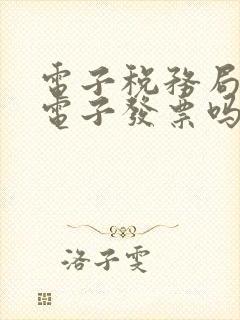 電子稅務局
電子發票吗
洛子雯